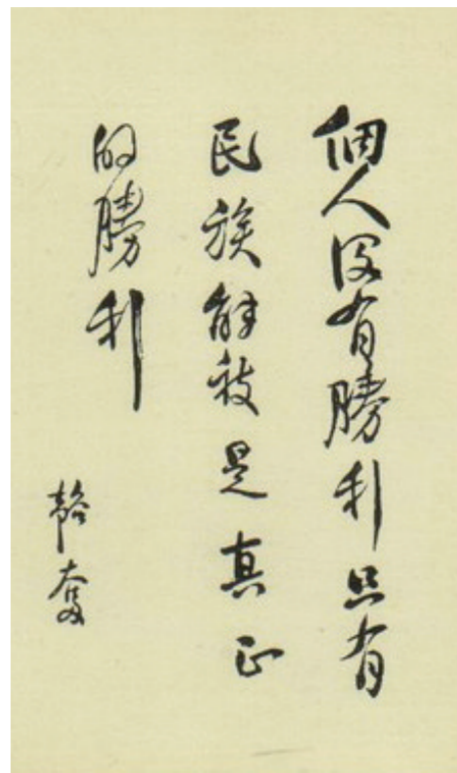 個人沒有勝利只有
民族解放是真正
的勝利
韜奮